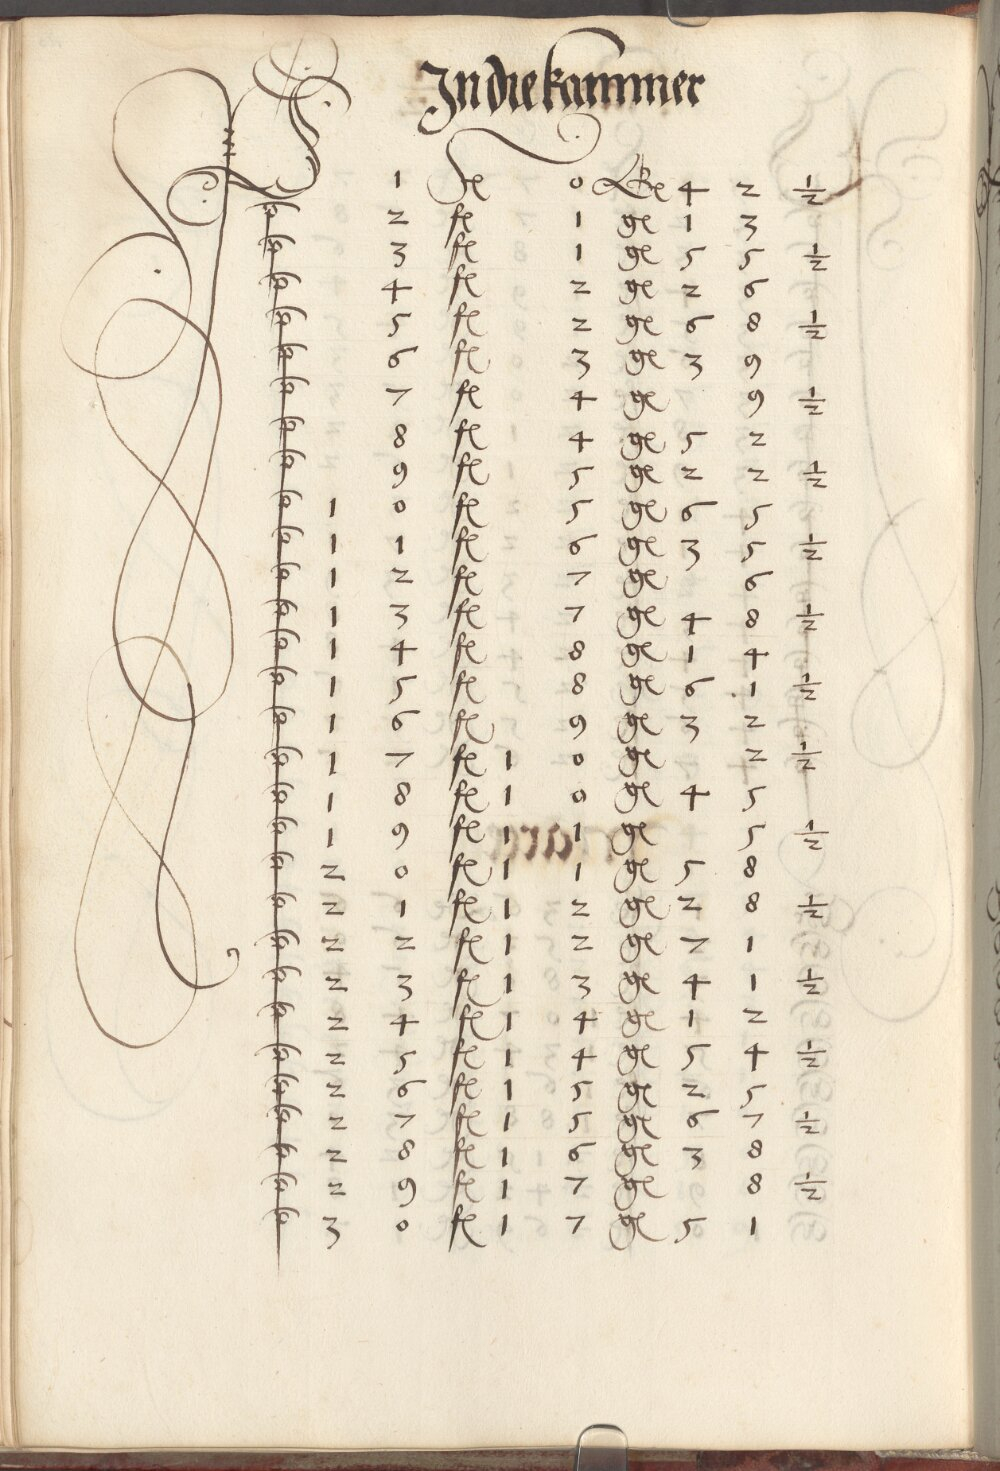 In die kammer
1 fl 0 ge 4 2 1/2
2 fl 1 ge 1 3
3 fl 1 ge 5 5 1/2
4 fl 2 ge 2 6
5 fl 2 ge 6 8 1/2
6 fl 3 ge 3 9
7 fl 4 ge 9 1/2
8 fl 4 ge 5 2
9 fl 5 ge 2 2 1/2
1 0 fl 5 ge 6 5
1 1 fl 6 ge 3 5 1/2
1 2 fl 7 ge 6
1 3 fl 7 ge 4 8 1/2
1 4 fl 8 ge 1 4
1 5 fl 8 ge 6 1 1/2
1 6 fl 9 ge 3 2
1 7 fl 1 0 ge 2 1/2
1 8 fl 1 0 ge 4 5
1 9 fl 1 1 ge 5 1/2
2 0 fl 1 1 ge 5 8
2 1 fl 1 2 ge 2 8 1/2
2 2 fl 1 2 ge 7 1
2 3 fl 1 3 ge 4 1 1/2
2 4 fl 1 4 ge 1 2
2 5 fl 1 4 ge 5 4 1/2
2 6 fl 1 5 ge 2 5
2 7 fl 1 5 ge 6 7 1/2
2 8 fl 1 6 ge 3 8
2 9 fl 1 7 ge 8 1/2
3 0 fl 1 7 ge 5 1